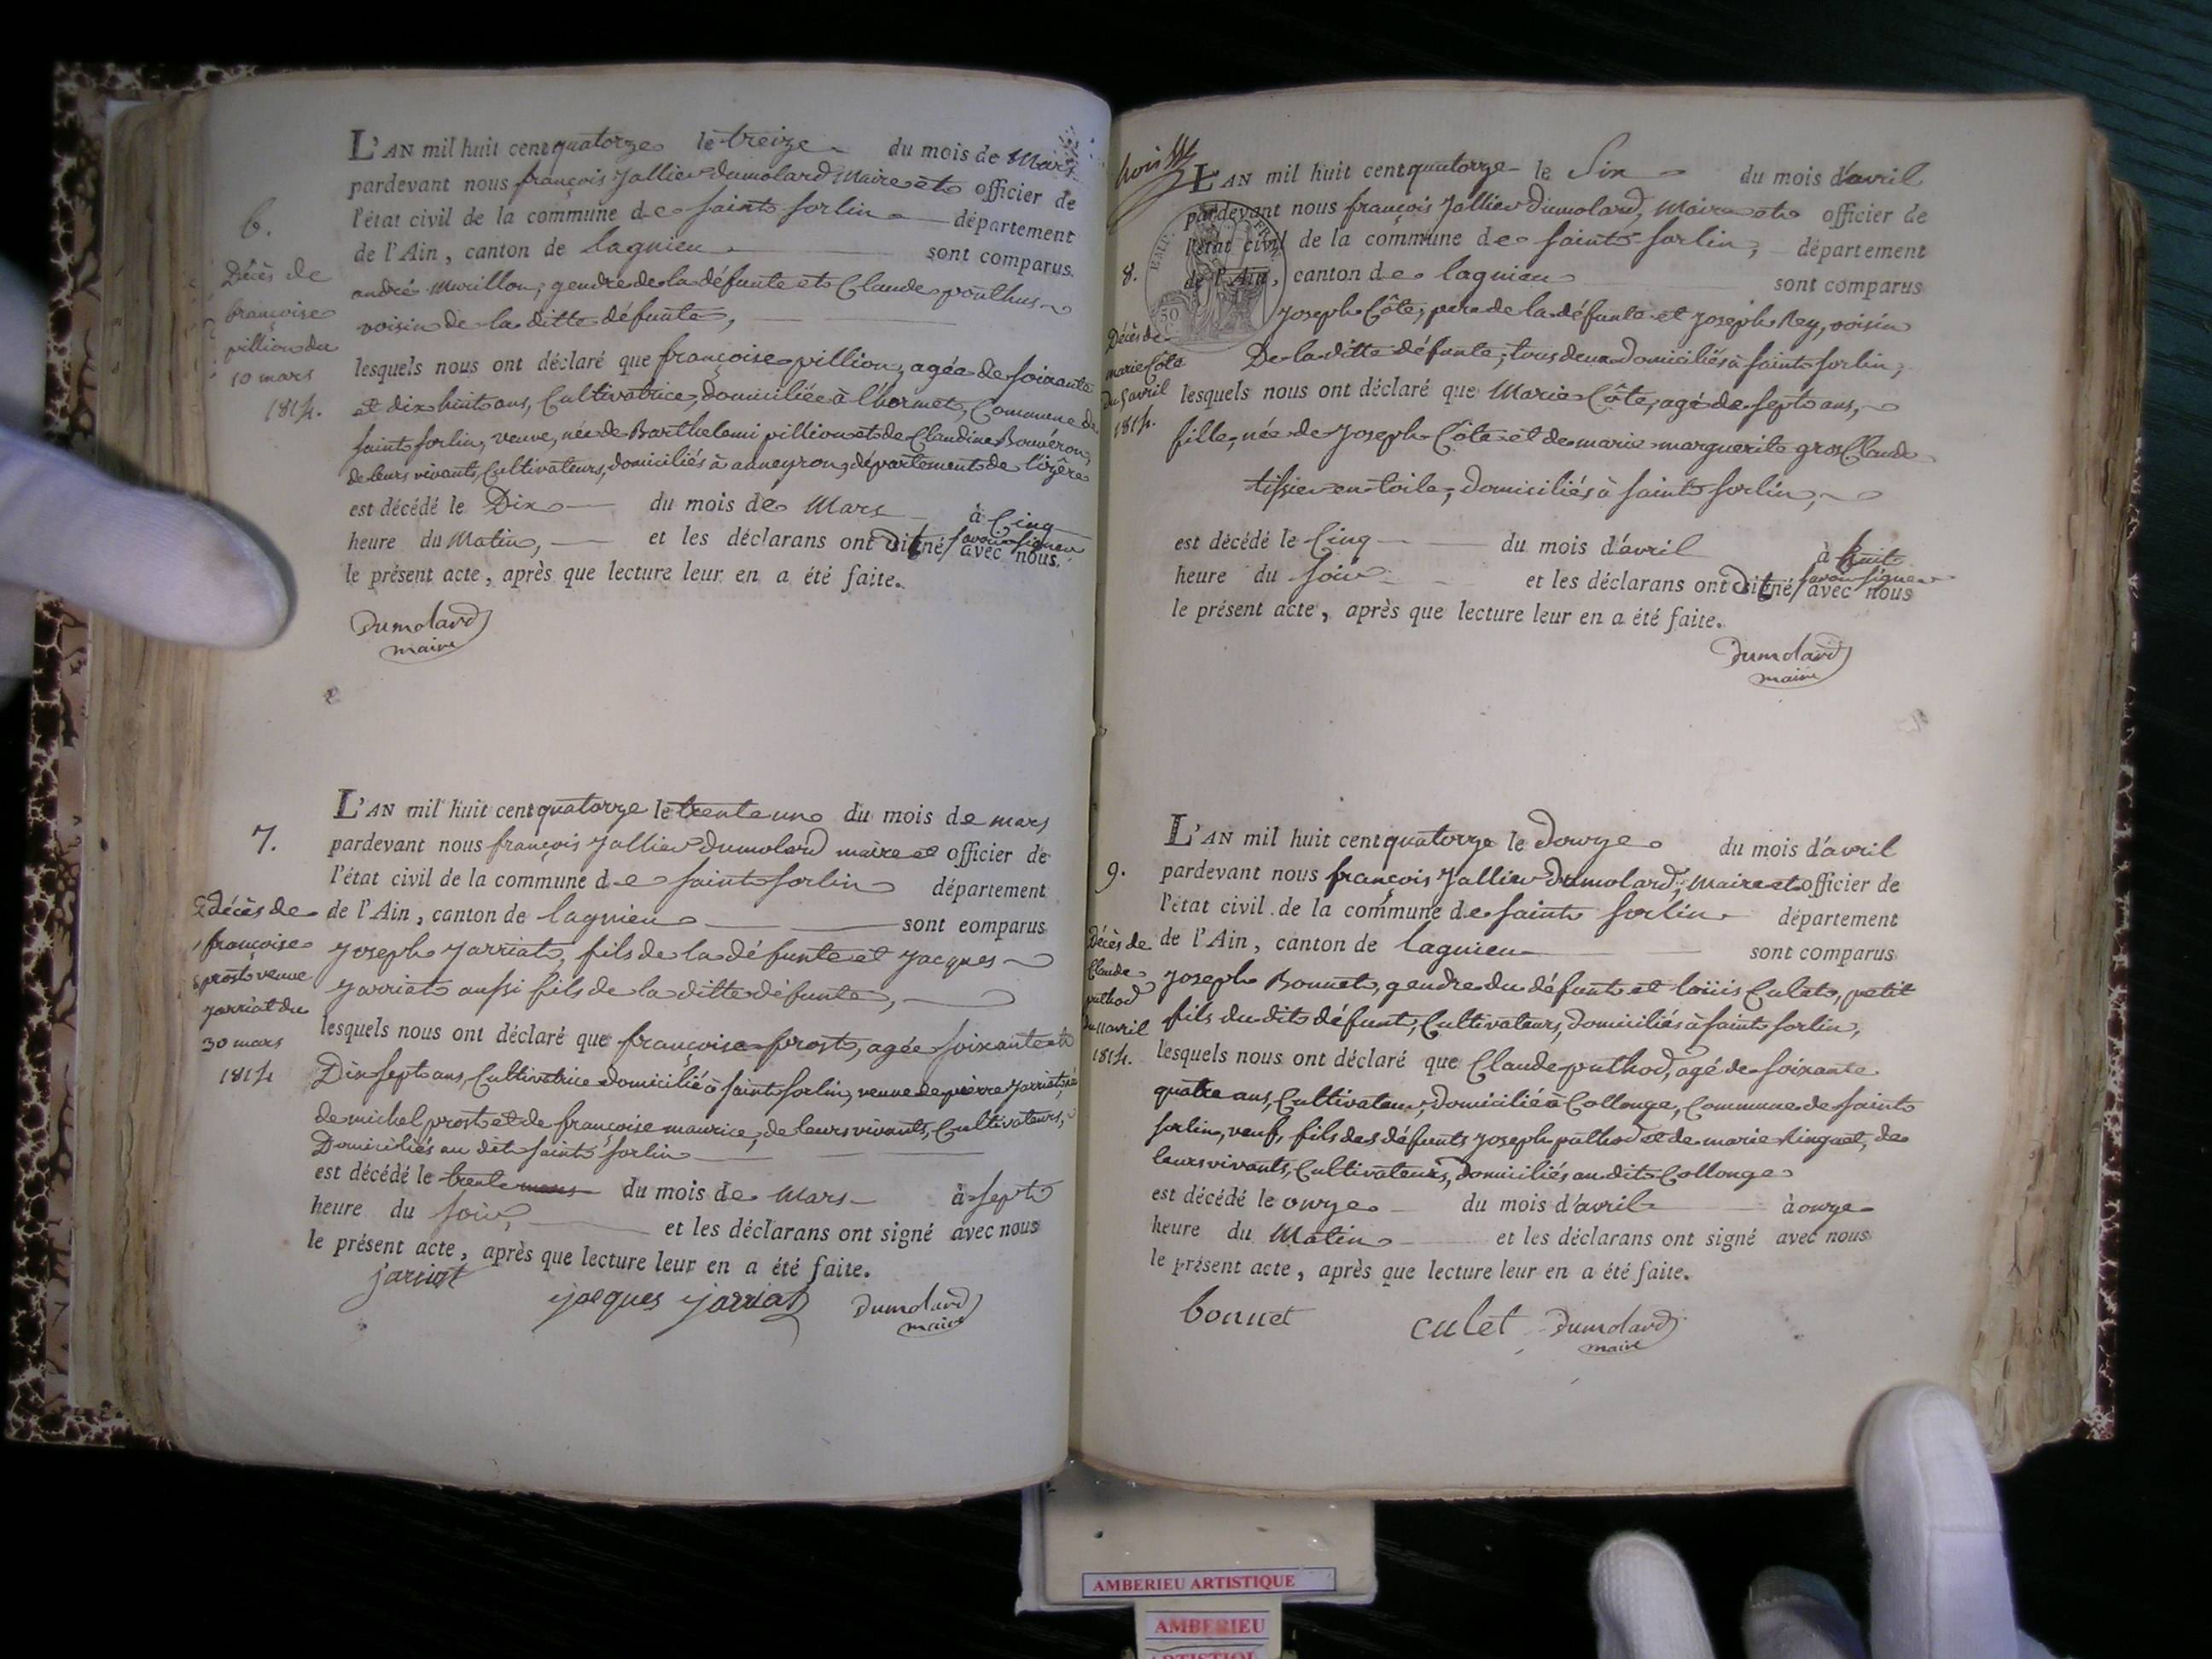 6.
Décès de
françoise
pillion du
10 mars
1814.
L'AN mil huit cent quatorze le treize du mois de Mars
pardevant nous françois Jallier Dumolard Maire et officier de
l'état civil de la commune de saint sorlin département
de l'Ain, canton de lagnieu sont comparus.
andré Murillon, gendre de la défunte et Claude ponthus
voisin de la ditte défunte,
lesquels nous ont déclaré que françoise pillion, agée de soixante
et dix huit ans, Cultivatrice, domiciliée à l'hormet, Commune de
saint sorlin, veuve, née de Barthelemi pillion et de Claudine Bouvéron,
de leurs vivants, Cultivateurs, domiciliés à anneyron, département de l'izêre
est décédé le Dix du mois de Mars à Cinq
heure du Matin, et les déclarans ont dit né savoir signer avec nous.
le présent acte, après que lecture leur en a été faite.
Dumolard
maire
7.
décès de
françoise
prost veuve
jarriat du
30 mars
1814
L'AN mil huit cent quatorze le trente un du mois de mars
pardevant nous françois Jallier Dumolard maire et officier de
l'état civil de la commune de saint sorlin département
de l'Ain, canton de lagnieu sont comparus
joseph jarriat, fils de la défunte et jacques
jarriat aussi fils de la ditte défunte,
lesquels nous ont déclaré que françoise prost, agée soixante et
Dix sept ans, Cultivatrice domicilié à saint sorlin, veuve de pierre jarriat, né
de michel prost et de françoise maurice, de leurs vivants, Cultivateurs,
Domiciliés au dit saint sorlin
est décédé le trente mars du mois de Mars à sept
heure du soir, et les déclarans ont signé avec nous
le présent acte, après que lecture leur en a été faite.
jarriat jacques jarriat Dumolard
maire
8.
Décès de
marie Côte
du 5 avril
1814.
L'AN mil huit cent quatorze le Six du mois d'avril
pardevant nous françois Jallier Dumolard, Maire et officier de
l'état civil de la commune de saint sorlin, département
de l'Ain, canton de lagnieu sont comparus
joseph Côte, pere de la défunte et joseph Rey, voisin
De la ditte défunte, tous deux domiciliés à saint sorlin,
lesquels nous ont déclaré que Marie Côte, agé de sept ans,
fille, née de joseph Côte et de marie marguerite gros Claude
tissier en toile, domiciliés à saint sorlin,
est décédé le Cinq du mois d'avril à huit
heure du soir et les déclarans ont dit né savoir signer avec nous
le présent acte, après que lecture leur en a été faite.
Dumolard
maire
9.
Décès de
Claude
puthod
du 11 avril
1814.
L'AN mil huit cent quatorze le Douze du mois d'avril
pardevant nous françois Jallier Dumolard, Maire et officier de
l'état civil de la commune de saint sorlin département
de l'Ain, canton de lagnieu sont comparus
joseph Bonnet, gendre du défunt et loüis Culet, petit
fils du dit défunt, Cultivateurs, domiciliés à saint sorlin,
lesquels nous ont déclaré que Claude puthod, agé de soixante
quatre ans, Cultivateur, domicilié à Collonge, Commune de saint
sorlin, veuf, fils des défunts joseph puthod et de marie Ringuet, de
leurs vivants, Cultivateurs, domiciliés au dit Collonge
est décédé le onze du mois d'avril à onze
heure du Matin et les déclarans ont signé avec nous
le présent acte, après que lecture leur en a été faite.
bonnet culet Dumolard
maire
AMBERIEU ARTISTIQUE
AMBERIEU
ARTISTIQUE